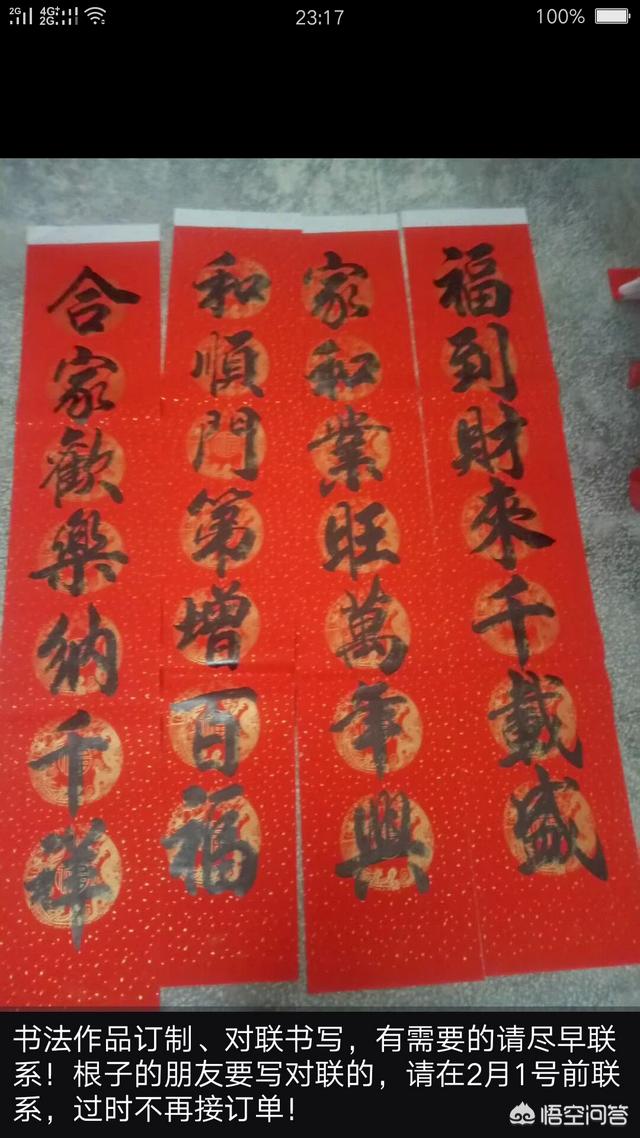 2G 4G+ 2G 23:17 100%
福到財來千載盛
家和業旺萬年興
和順門第增百福
合家歡樂納千祥
书法作品订制、对联书写，有需要的请尽早联
系！根子的朋友要写对联的，请在2月1号前联
系，过时不再接订单！
悟空问答